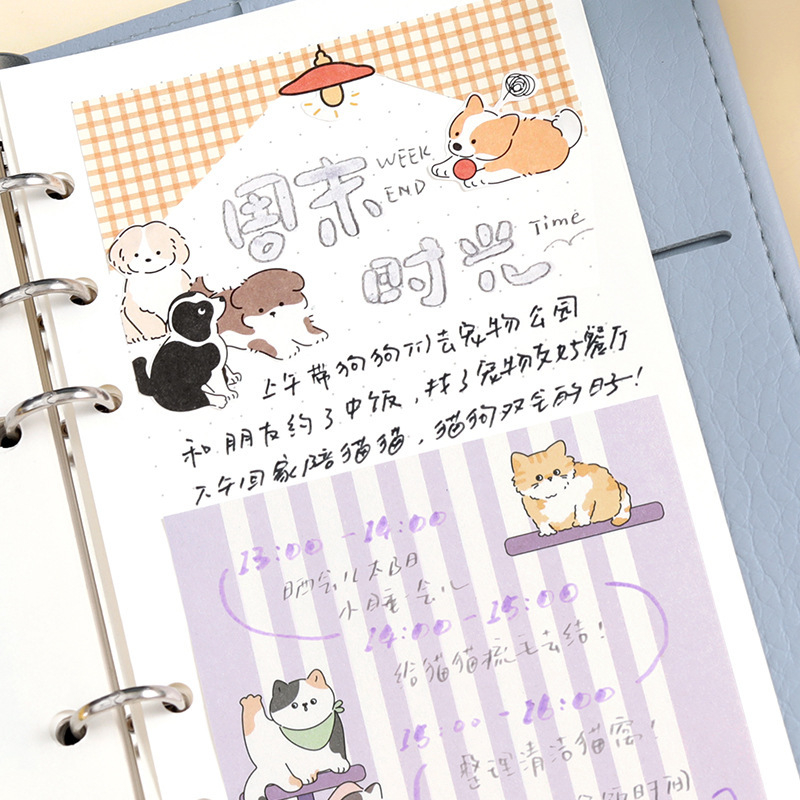 周末 WEEK
END
时光 Time
上午带狗狗们去宠物公园
和朋友约了中饭，找了宠物友好餐厅
下午回家陪猫猫，猫狗双全的日子！
13:00-14:00
晒会儿太阳
小睡一会儿
14:00-15:00
给猫猫梳毛去结！
15:00-16:00
整理清洁猫窝！
饭时间